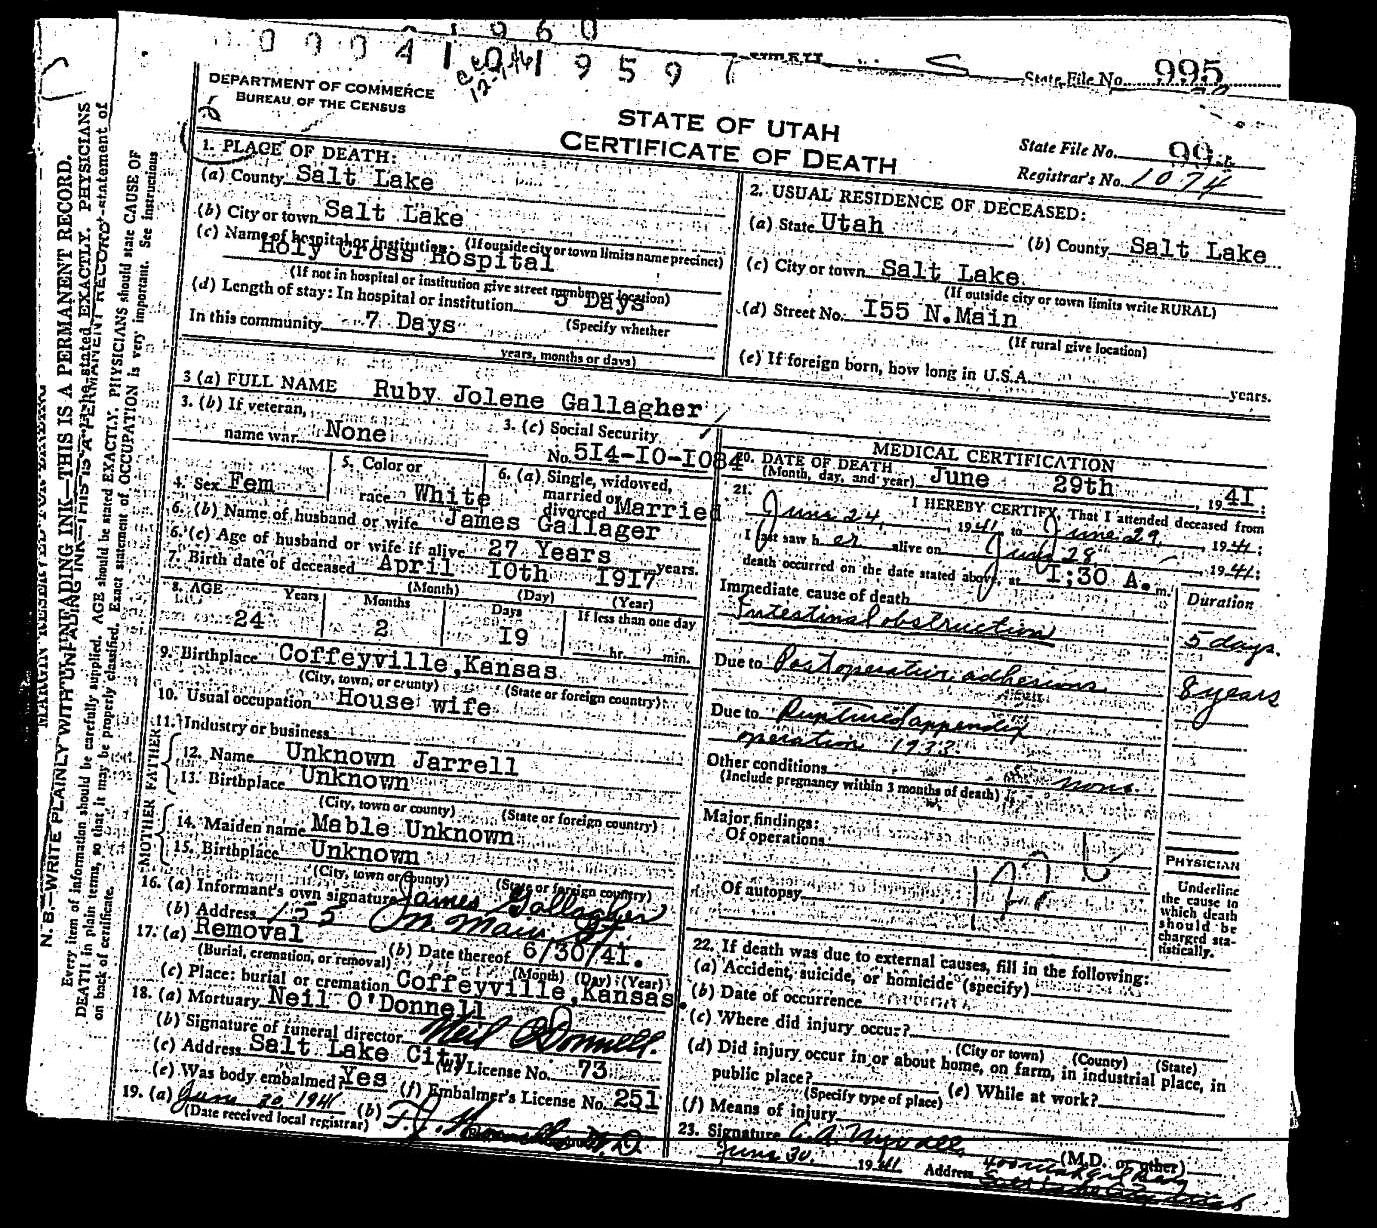 0 0 0 4 1 0 1 9 5 9 7
1 9 6 0
State File No. 995
DEPARTMENT OF COMMERCE
BUREAU OF THE CENSUS
STATE OF UTAH
CERTIFICATE OF DEATH
State File No. 99
Registrar's No. 1074
MARGIN RESERVED FOR BINDING
N. B.—WRITE PLAINLY WITH UNFADING INK—THIS IS A PERMANENT RECORD.
Every item of information should be carefully supplied. AGE should be stated EXACTLY. PHYSICIANS should state CAUSE OF
DEATH in plain terms, so that it may be properly classified. Exact statement of OCCUPATION is very important. See instructions
on back of certificate.
1. PLACE OF DEATH:
(a) County Salt Lake
(b) City or town Salt Lake
(If outside city or town limits name precinct)
(c) Name of hospital or institution:
Holy Cross Hospital
(If not in hospital or institution give street number or location)
(d) Length of stay: In hospital or institution 5 Days
(Specify whether
In this community 7 Days
years, months or days)
2. USUAL RESIDENCE OF DECEASED:
(a) State Utah (b) County Salt Lake
(c) City or town Salt Lake
(If outside city or town limits write RURAL)
(d) Street No. I55 N.Main
(If rural give location)
(e) If foreign born, how long in U.S.A. years.
3 (a) FULL NAME Ruby Jolene Gallagher
3. (b) If veteran,
name war None
3. (c) Social Security
No. 5I4-I0-I084
4. Sex Fem
5. Color or
race White
6. (a) Single, widowed,
married or
divorced Married
6. (b) Name of husband or wife James Gallager
6. (c) Age of husband or wife if alive 27 Years years.
7. Birth date of deceased April I0th I9I7
(Month) (Day) (Year)
8. AGE Years Months Days If less than one day
24 2 I9 hr. min.
9. Birthplace Coffeyville,Kansas
(City, town, or county) (State or foreign country)
10. Usual occupation House wife
11. Industry or business
FATHER
12. Name Unknown Jarrell
13. Birthplace Unknown
(City, town or county) (State or foreign country)
MOTHER
14. Maiden name Mable Unknown
15. Birthplace Unknown
(City, town or county) (State or foreign country)
16. (a) Informant's own signature James Gallagher
(b) Address 155 N. Main St.
17. (a) Removal (b) Date thereof 6/30/41.
(Burial, cremation, or removal) (Month) (Day) (Year)
(c) Place: burial or cremation Coffeyville,Kansas.
18. (a) Mortuary Neil O'Donnell
(b) Signature of funeral director Neil O'Donnell.
(c) Address Salt Lake City (d) License No. 73
(e) Was body embalmed? Yes (f) Embalmer's License No. 251
19. (a) June 30 1941 (b)
(Date received local registrar)
MEDICAL CERTIFICATION
20. DATE OF DEATH
(Month, day, and year) June 29th, 1941;
21. I HEREBY CERTIFY, That I attended deceased from
June 24, 1941 to June 29, 1941;
I last saw her alive on June 28, 1941;
death occurred on the date stated above, at I:30 A. m.
Immediate cause of death Duration
Intestinal obstruction 5 days.
Due to Postoperative adhesions 8 years
Due to Ruptured appendix
operation 1933
Other conditions None
(Include pregnancy within 3 months of death)
Major findings:
Of operations
Of autopsy
PHYSICIAN
Underline
the cause to
which death
should be
charged sta-
tistically.
22. If death was due to external causes, fill in the following:
(a) Accident, suicide, or homicide (specify)
(b) Date of occurrence
(c) Where did injury occur?
(City or town) (County) (State)
(d) Did injury occur in or about home, on farm, in industrial place, in
public place? (e) While at work?
(Specify type of place)
(f) Means of injury
23. Signature (M.D. or other)
June 30, 1941 Address